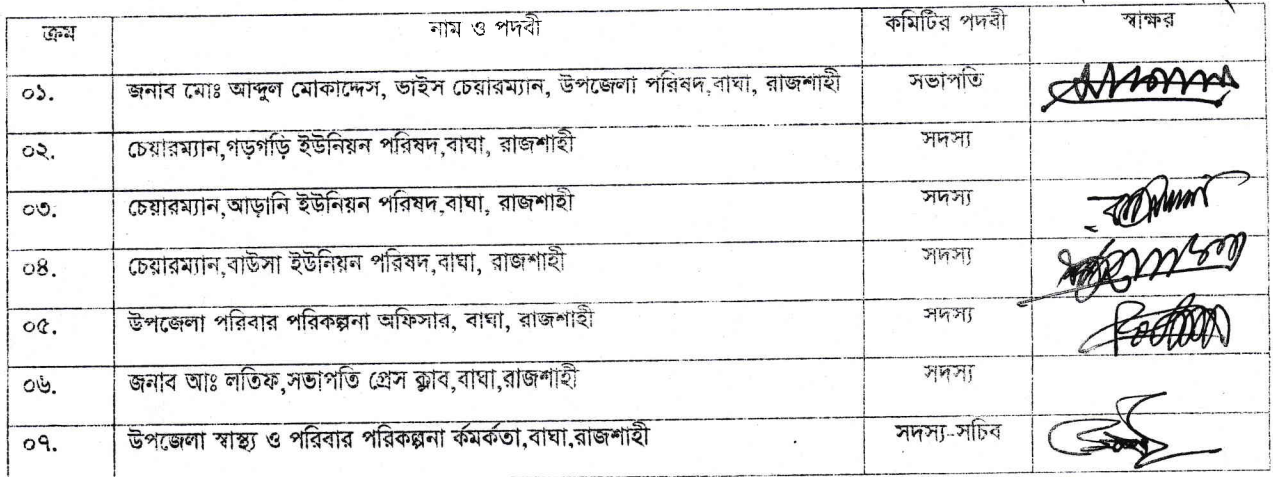 ক্রম নাম ও পদবী কমিটির পদবী স্বাক্ষর
০১. জনাব মোঃ আব্দুল মোকাদ্দেস, ভাইস চেয়ারম্যান, উপজেলা পরিষদ,বাঘা, রাজশাহী সভাপতি
০২. চেয়ারম্যান,গড়গড়ি ইউনিয়ন পরিষদ,বাঘা, রাজশাহী সদস্য
০৩. চেয়ারম্যান,আড়ানি ইউনিয়ন পরিষদ,বাঘা, রাজশাহী সদস্য
০৪. চেয়ারম্যান,বাউসা ইউনিয়ন পরিষদ,বাঘা, রাজশাহী সদস্য
০৫. উপজেলা পরিবার পরিকল্পনা অফিসার, বাঘা, রাজশাহী সদস্য
০৬. জনাব আঃ লতিফ,সভাপতি প্রেস ক্লাব,বাঘা,রাজশাহী সদস্য
০৭. উপজেলা স্বাস্থ্য ও পরিবার পরিকল্পনা র্কমর্কতা,বাঘা,রাজশাহী সদস্য-সচিব